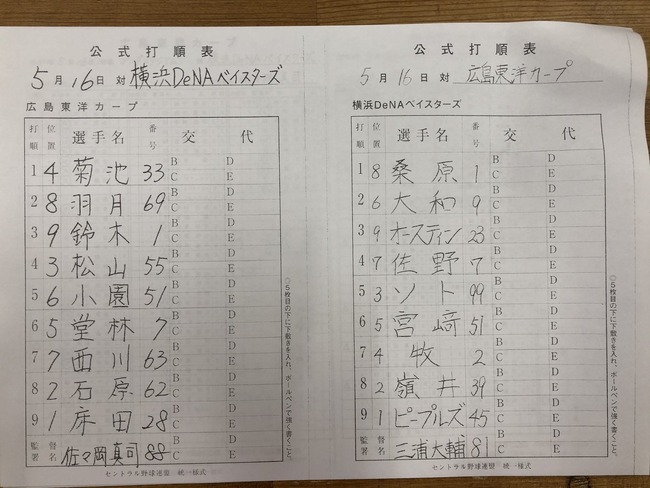 公式打順表
5月16日 対 横浜DeNAベイスターズ
広島東洋カープ
打順 位置 選手名 番号 交代
1 4 菊池 33 B C D E
2 8 羽月 69 B C D E
3 9 鈴木 1 B C D E
4 3 松山 55 B C D E
5 6 小園 51 B C D E
6 5 堂林 7 B C D E
7 7 西川 63 B C D E
8 2 石原 62 B C D E
9 1 床田 28 B C D E
監督署名 佐々岡真司 88 B C D E
◎5枚目の下に下敷きを入れ、ボールペンで強く書くこと。
セントラル野球連盟 統一様式
公式打順表
5月16日 対 広島東洋カープ
横浜DeNAベイスターズ
打順 位置 選手名 番号 交代
1 8 桑原 1 B C D E
2 6 大和 9 B C D E
3 9 オースティン 23 B C D E
4 7 佐野 7 B C D E
5 3 ソト 99 B C D E
6 5 宮﨑 51 B C D E
7 4 牧 2 B C D E
8 2 嶺井 39 B C D E
9 1 ピープルズ 45 B C D E
監督署名 三浦大輔 81 B C D E
◎5枚目の下に下敷きを入れ、ボールペンで強く書くこと。
セントラル野球連盟 統一様式